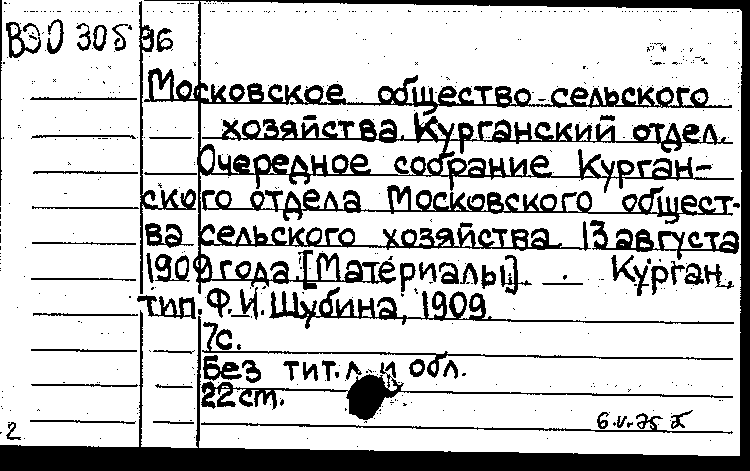 ВЭО 305 96
Московское общество сельского
хозяйства. Курганский отдел.
Очередное собрание Курган-
ского отдела Московского общест-
ва сельского хозяйства 13 августа
1909 года. [Материалы]. Курган,
тип. Ф. И. Шубина, 1909.
7с.
Без тит. л. и обл.
22 cm.
6.V.75
2